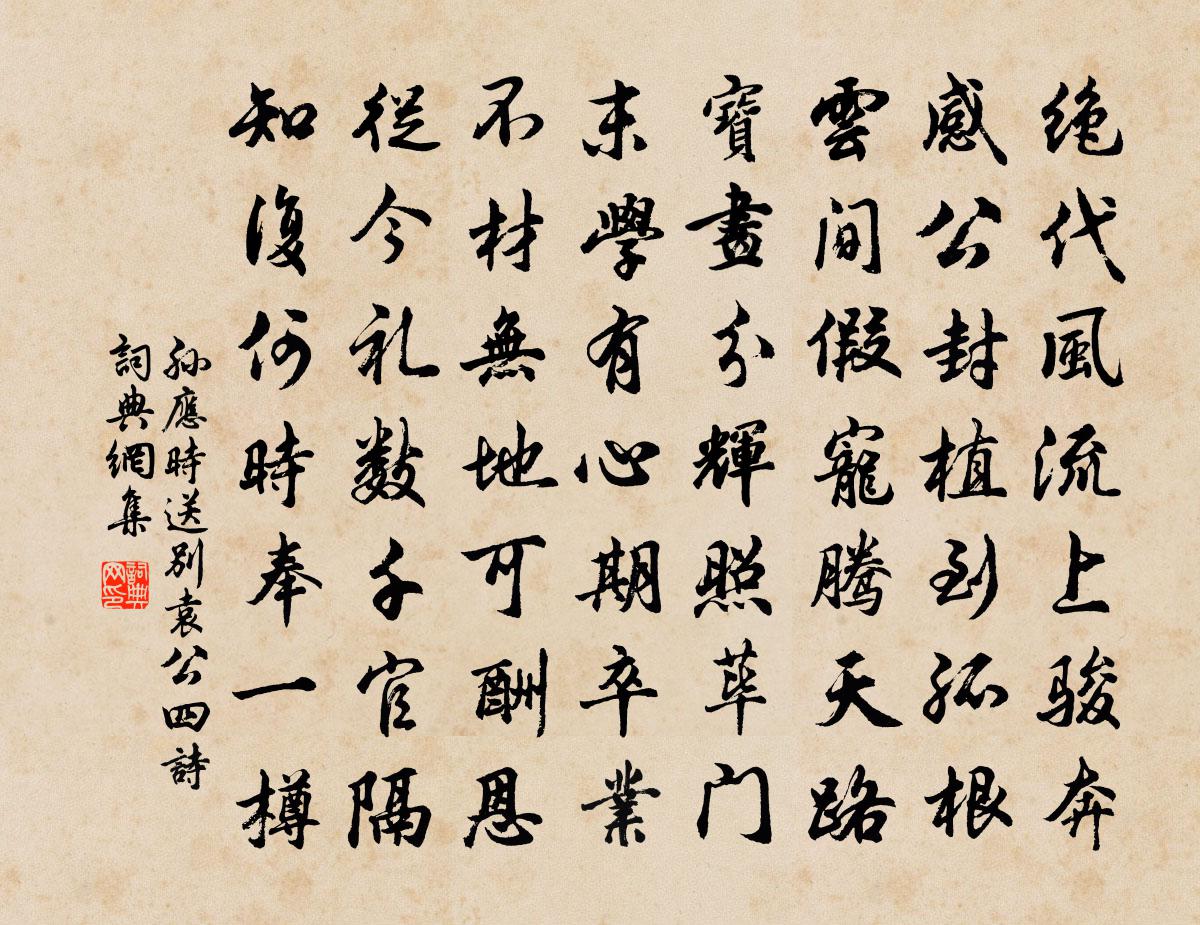 绝代風流上骏奔
感公封植到孤根
雲间假寵腾天路
寶畫分輝照荜门
末學有心期卒業
不材無地可酬恩
從今礼数千官隔
知復何時奉一樽
孙應時送别袁公四詩
詞典網集
詞典网印